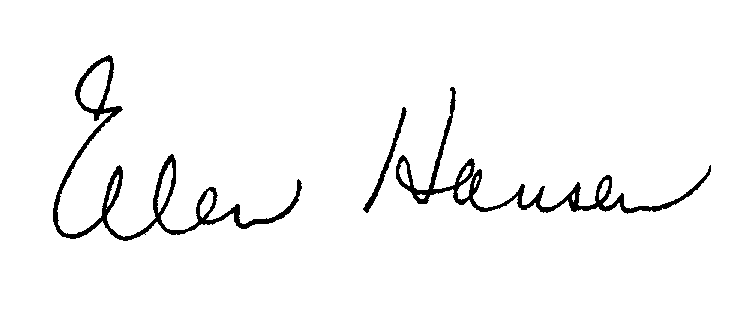 Ellen Hansen